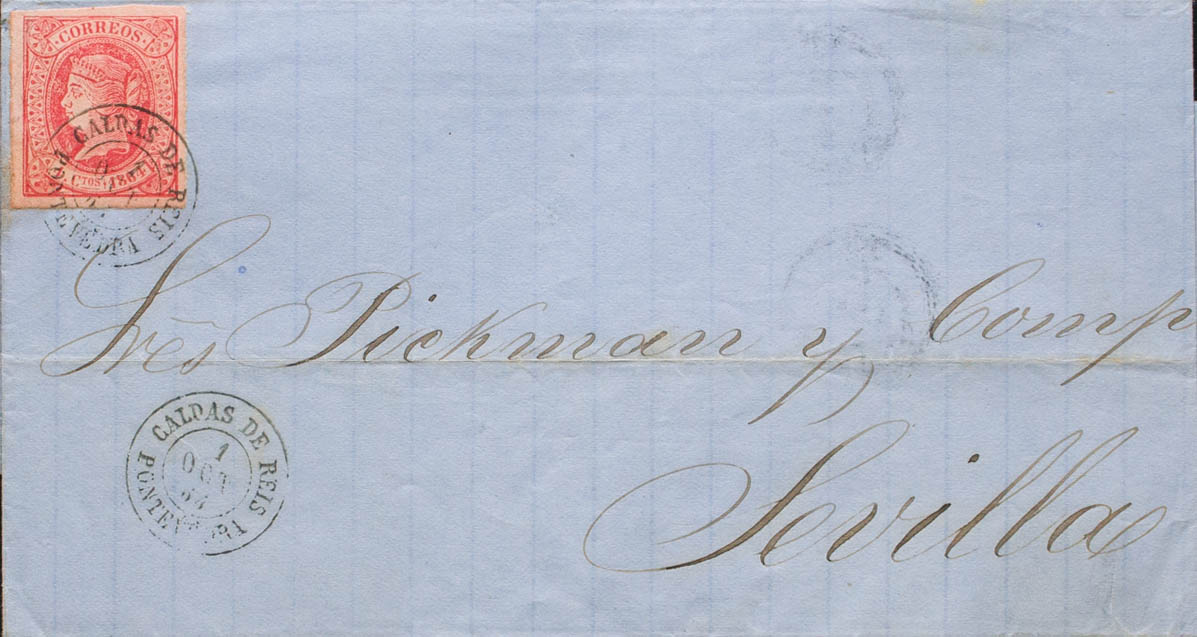 CORREOS
CTOS 1864
CALDAS DE REIS
PONTEVEDRA
Sres Pickman y Comp
CALDAS DE REIS
1
OCT
64
PONTEVEDRA
Sevilla